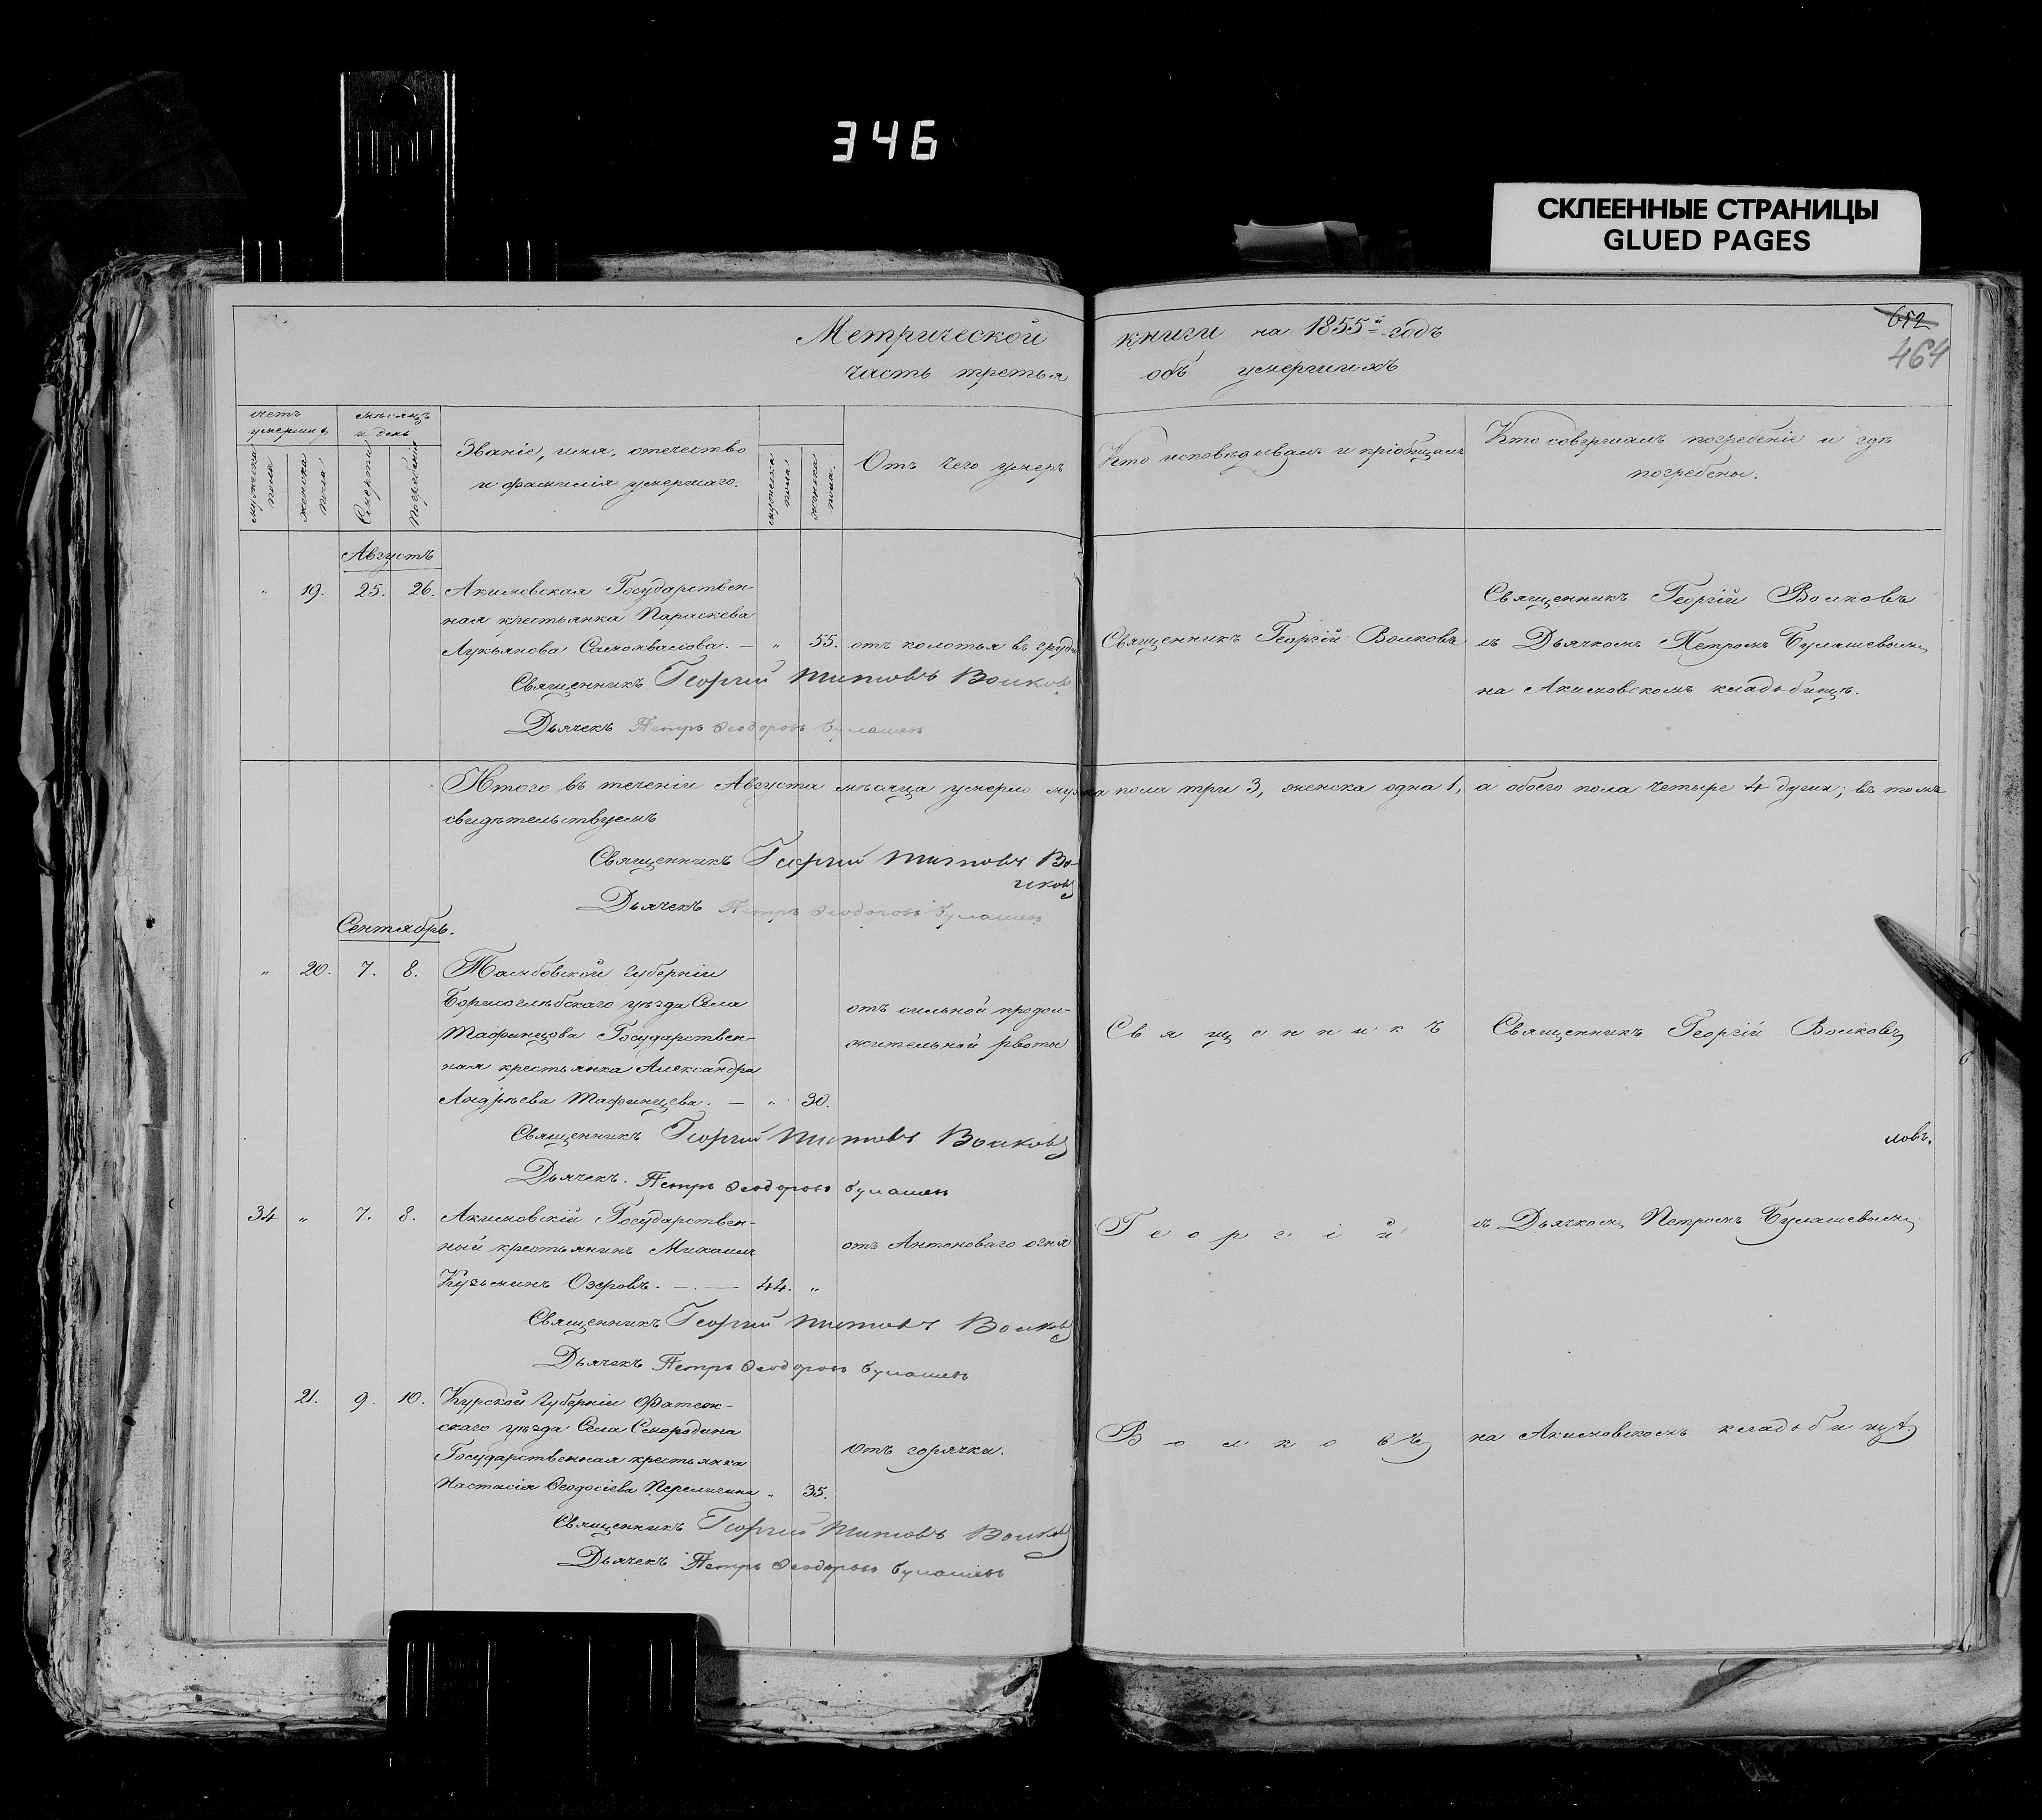 346
СКЛЕЕННЫЕ СТРАНИЦЫ
GLUED PAGES
652
464
Метрической книги на 1855й годъ
часть третья объ умершихъ
счетъ умершихъ
мѣсяцъ и день
мужеска пола
женска пола
Смерти
Погребенія
Званіе, имя, отечество
и фамилія умершаго.
мужеска пола
женска пола.
Отъ чего умеръ
Кто исповѣдывалъ и пріобщалъ
Кто совершалъ погребеніе и гдѣ
погребены.
Августъ
" 19. 25. 26. Акимовская Государствен-
ная крестьянка Параскева
Лукьянова Самохвалова. — " 55. отъ колотья въ груди
Священникъ Георгій Волковъ
Священникъ Георгій Волковъ
съ Дьячкомъ Петромъ Булашевымъ
на Акимовскомъ кладбищѣ.
Священникъ Георгій Титовъ Волковъ
Дьячекъ Петръ Ѳеодоровъ Булашевъ
Итого въ теченіи Августа мѣсяца умерло мужска пола три 3, женска одна 1, а обоего пола четыре 4 души; въ томъ
свидѣтельствуемъ
Священникъ Георгій Титовъ Во-
лковъ
Дьячекъ Петръ Ѳеодоровъ Булашевъ
Сентябрь.
" 20. 7. 8. Тамбовской губерніи
Борисоглѣбскаго уѣзда Села
Мафинцова Государствен-
ная крестьянка Александра
Андрѣева Мафинцева. — " 30.
отъ сильной продол-
жительной рвоты
Священникъ
Священникъ Георгій Волковъ
Священникъ Георгій Титовъ Волковъ
Дьячекъ. Петръ Ѳеодоровъ Булашевъ
34 " 7. 8. Акимовскій Государствен-
ный крестьянинъ Михаилъ
Кузьминъ Озеровъ. — 44. "
отъ Антонова огня
Георгій
съ Дьячкомъ Петромъ Булашевымъ
Священникъ Георгій Титовъ Волковъ
Дьячекъ Петръ Ѳеодоровъ Булашевъ
21. 9. 10. Курской Губерніи Фатеж-
скаго уѣзда Села Смородина
Государственная крестьянка
Настасія Ѳеодосіева " 35.
отъ горячки.
Волковъ
на Акимовскомъ кладбищѣ
Священникъ Георгій Титовъ Волковъ
Дьячекъ Петръ Ѳеодоровъ Булашевъ
ловъ.